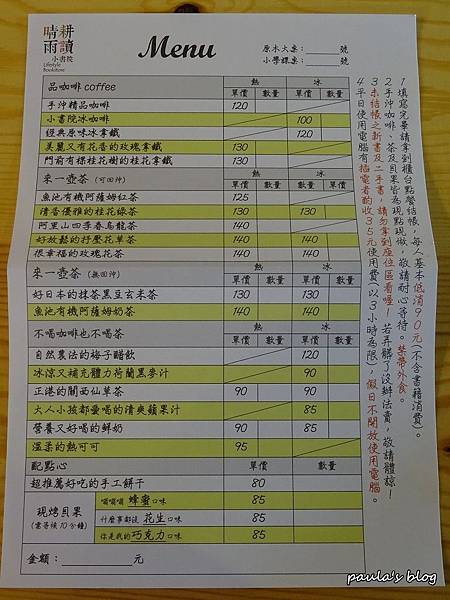 晴耕
雨讀
小書院
Lifestyle
Bookstore
Menu
原木大桌：______號
小學課桌：______號
品咖啡 coffee 熱 冰
單價 數量 單價 數量
手沖精品咖啡 120
小書院冰咖啡 100
經典原味冰拿鐵 120
美麗又有花香的玫瑰拿鐵 130
門前有棵桂花樹的桂花拿鐵 130
來一壺茶（可回沖） 熱 冰
單價 數量 單價 數量
魚池有機阿薩姆紅茶 125
清香優雅的桂花綠茶 130 130
阿里山四季春烏龍茶 140
好放鬆的抒壓花草茶 140 140
很幸福的玫瑰花茶 140 140
來一壺茶（無回沖） 熱 冰
單價 數量 單價 數量
好日本的抹茶黑豆玄米茶 130 130
魚池有機阿薩姆奶茶 140 140
不喝咖啡也不喝茶 熱 冰
單價 數量 單價 數量
自然農法的梅子醋飲 120
冰涼又補充體力荷蘭黑麥汁 90
正港的關西仙草茶 90 90
大人小孩都愛喝的清爽蘋果汁 85
營養又好喝的鮮奶 90 85
溫柔的熱可可 95
配點心 單價 數量
超推薦好吃的手工餅干 80
現烤貝果
(需等候10分鐘)
嗡嗡嗡 蜂蜜口味 85
什麼事都沒 花生口味 85
你是我的巧克力口味 85
金額：__________元
1 填寫完畢請拿到櫃台點餐結帳，每人基本低消90元(不含書籍消費)。
2 手沖咖啡、茶及貝果皆為現點現做，敬請耐心等待。禁帶外食。
3 未結帳之新書及二手書，請勿拿到座位區看喔！若弄髒了沒辦法賣，敬請體諒！
4 平日使用電腦有插電者酌收35元使用費(以3小時為限，假日不開放使用電腦。
paula's blog